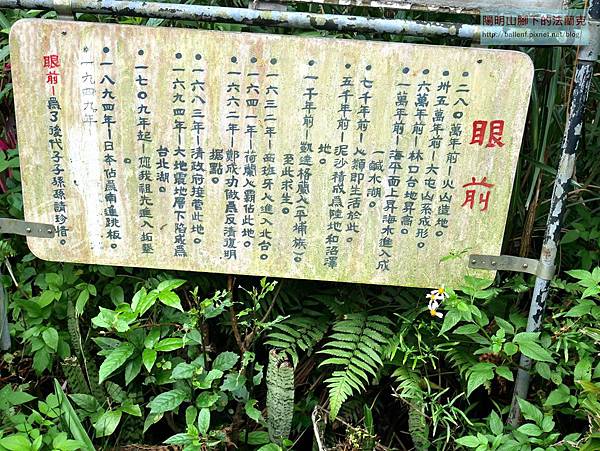 陽明山腳下的法蘭克
http://ballenf.pixnet.net/blog
眼前
•二八〇萬年前－火山造地。
•卅五萬年前－大屯山系成形。
•六萬年前－林口台地昇高。
•一萬年前－海平面上昇海水進入成
一鹹水湖。
•七千年前－人類即生活於此。
•五千年前－泥沙積成為陸地和沼澤
地。
•一千年前－凱達格蘭人（平埔族）
至此求生。
•一六三二年－西班牙人進入北台。
•一六四一年－荷蘭人霸佔此地。
•一六六二年－鄭成功做為反清復明
據點。
•一六八三年－清政府接管此地。
•一六九四年－大地震地層下陷成為
台北湖。
•一七〇九年起－您我祖先進入拓墾
•一八九四年－日本佔為南進跳板。
•一九四九年－
眼前－為了後代子子孫孫請珍惜。